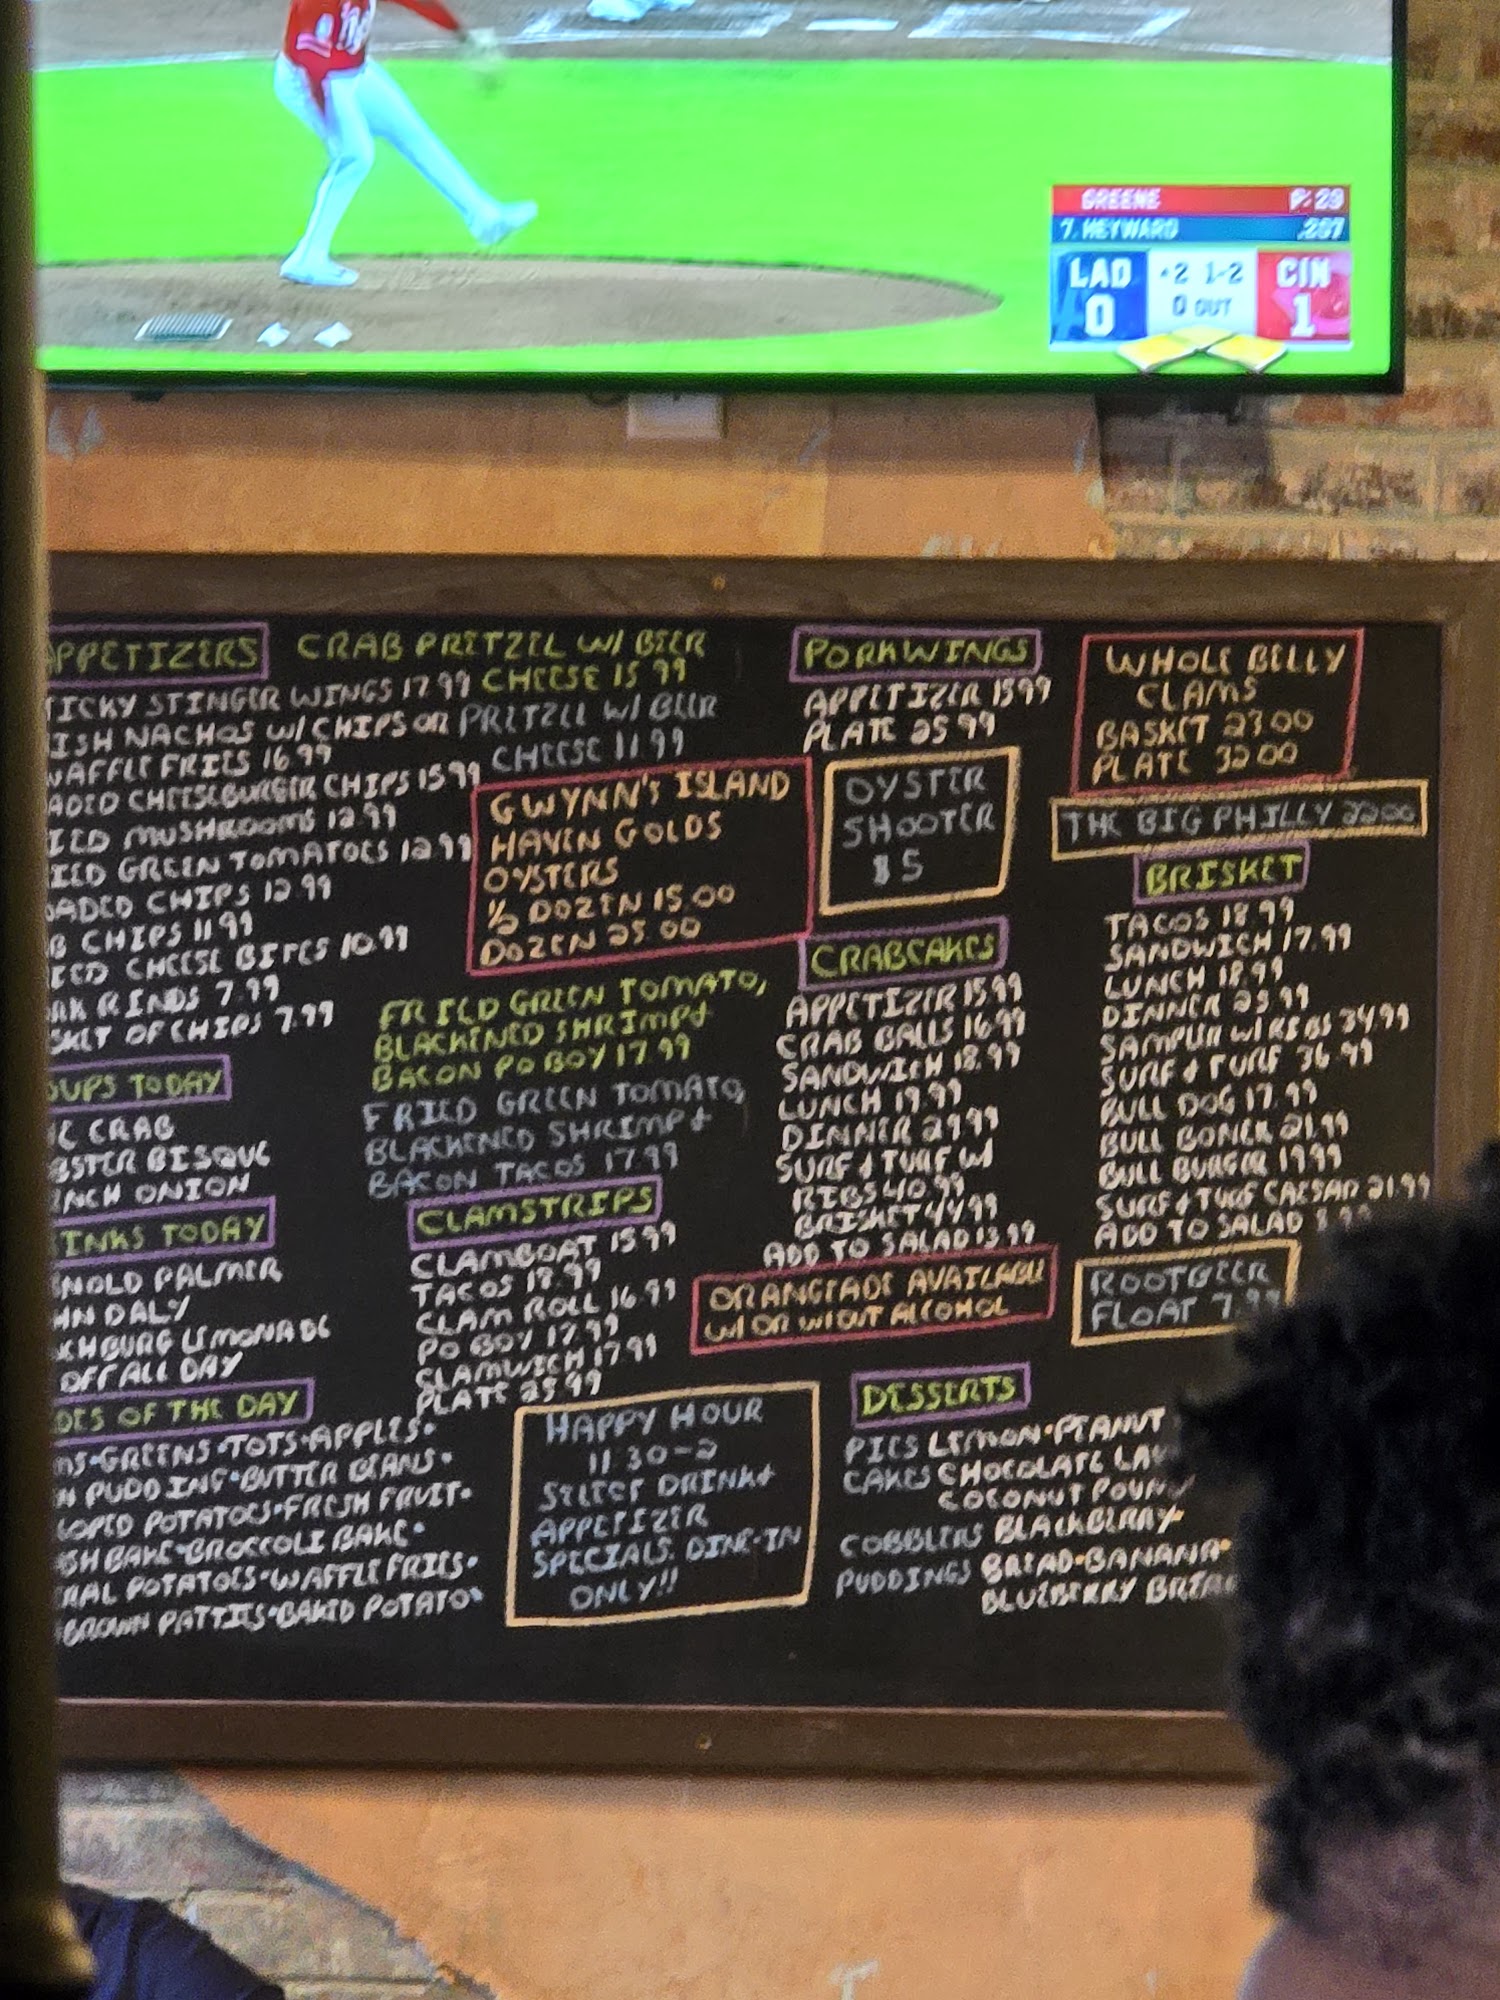 GREENE P: 29
7. HEYWARD .207
LAD 2 1-2 CIN
0 0 OUT 1
PPETIZERS
TICKY STINGER WINGS 17.99
ISH NACHOS W/ CHIPS OR
WAFFLE FRIES 16.99
ADED CHEESEBURGER CHIPS 15.99
IED MUSHROOMS 12.99
IED GREEN TOMATOES 12.99
OADED CHIPS 12.99
B CHIPS 11.99
IED CHEESE BITES 10.99
RK RINDS 7.99
SKET OF CHIPS 7.99
OUPS TODAY
C CRAB
BSTER BISQUE
ENCH ONION
INKS TODAY
NOLD PALMER
HN DALY
CHBURG LEMONADE
OFF ALL DAY
DES OF THE DAY
MS•GREENS•TOTS•APPLES•
N PUDDING•BUTTER BEANS•
LOPED POTATOES•FRESH FRUIT•
SH BAKE•BROCCOLI BAKE•
RAL POTATOES•WAFFLE FRIES•
BROWN PATTIES•BAKED POTATO•
CRAB PRETZEL W/ BEER
CHEESE 15.99
PRETZEL W/ BEER
CHEESE 11.99
GWYNN'S ISLAND
HAVEN GOLDS
OYSTERS
1/2 DOZEN 15.00
DOZEN 25.00
FRIED GREEN TOMATO,
BLACKENED SHRIMP &
BACON PO BOY 17.99
FRIED GREEN TOMATO,
BLACKENED SHRIMP &
BACON TACOS 17.99
CLAMSTRIPS
CLAMBOAT 15.99
TACOS 18.99
CLAM ROLL 16.99
PO BOY 17.99
CLAMWICH 17.99
PLATE 25.99
HAPPY HOUR
11:30-2
SELECT DRINK &
APPETIZER
SPECIALS. DINE-IN
ONLY!!
PORKWINGS
APPETIZER 15.99
PLATE 25.99
OYSTER
SHOOTER
$5
CRABCAKES
APPETIZER 15.99
CRAB BALLS 16.99
SANDWICH 18.99
LUNCH 19.99
DINNER 29.99
SURF & TURF W/
RIBS 40.99
BRISKET 44.99
ADD TO SALAD 13.99
ORANGEADE AVAILABLE
W/ OR W/OUT ALCOHOL
DESSERTS
PIES LEMON•PEANUT
CAKES CHOCOLATE LA
COCONUT POUN
COBBLERS BLACKBERRY•
PUDDINGS BREAD•BANANA•
BLUEBERRY BREA
WHOLE BELLY
CLAMS
BASKET 23.00
PLATE 32.00
THE BIG PHILLY 22.00
BRISKET
TACOS 18.99
SANDWICH 17.99
LUNCH 18.99
DINNER 25.99
SAMPLER W/ RIBS 34.99
SURF & TURF 36.99
BULL DOG 17.99
BULL BONEK 21.99
BULL BURGER 19.99
SURF & TURF CAESAR 21.99
ADD TO SALAD 8.99
ROOTBEER
FLOAT 7.99